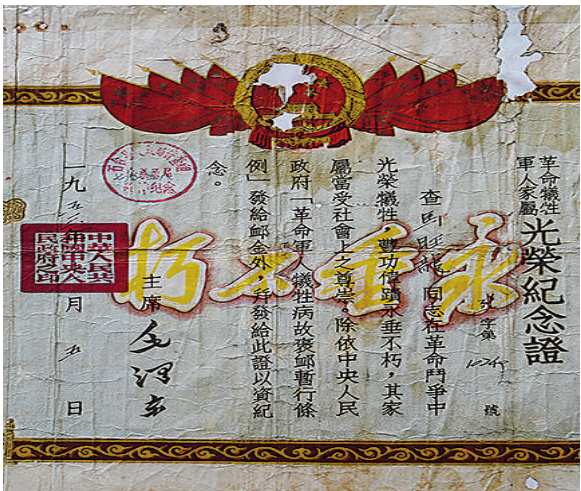 革命犧牲
軍人家屬
光榮紀念證
字第 號
查 旺龍 同志在革命鬥爭中
光榮犧牲，豐功偉績永垂不朽，其家
屬當受社會上之尊崇。除依中央人民
政府「革命軍 犧牲病故褒卹暫行條
例」發給卹金外，幷發給此證以資紀
念。
永垂不朽
主席 毛澤东
一九五 月 五 日
中華人民共
和國中央人
民政府之印